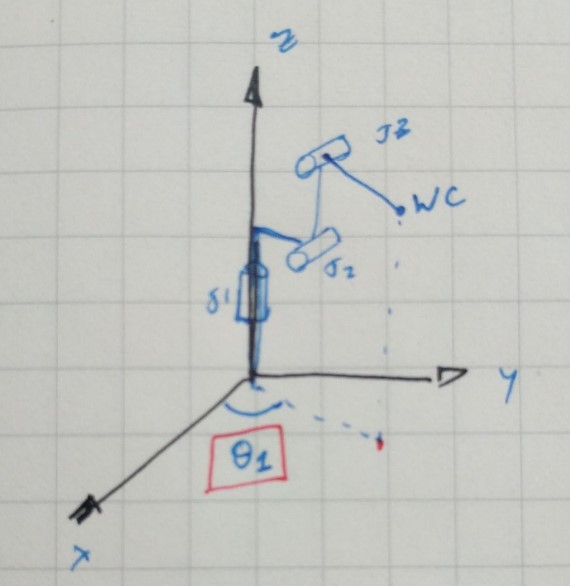 Z
J3
WC
J2
J1
Y
θ1
X